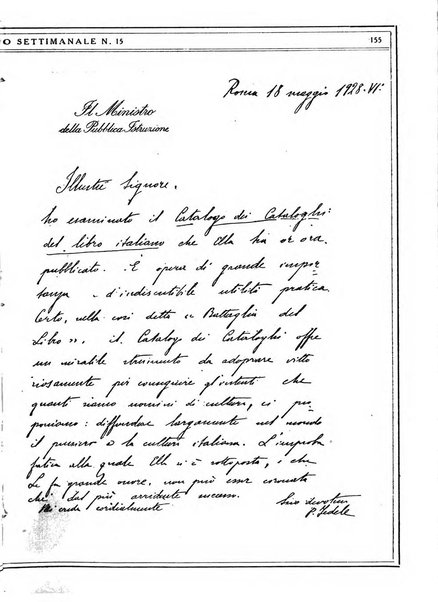 O SETTIMANALE N. 15
155
Roma 18 maggio 1928. VI.
Il Ministro
della Pubblica Istruzione
Illustre Signore,
ho esaminato il Catalogo dei Cataloghi
del libro italiano che Ella ha or ora
pubblicato. È opera di grande impor
tanza e d'indiscutibile utilità pratica
Certo, nella così detta « Battaglia del
Libro », il Catalogo dei Cataloghi offre
un mirabile strumento da adoprare vitto
riosamente per conseguire gl'intenti che
quanti siamo uomini di cultura, ci pro
poniamo: diffondere largamente nel mondo
il pensiero e la cultura italiana. L'improba
fatica alla quale Ella si è sottoposta, e che
Le fa grande onore, non può esser coronata
che dal più arridente successo.
Mi creda cordialmente
Suo devotmo
P. Fedele